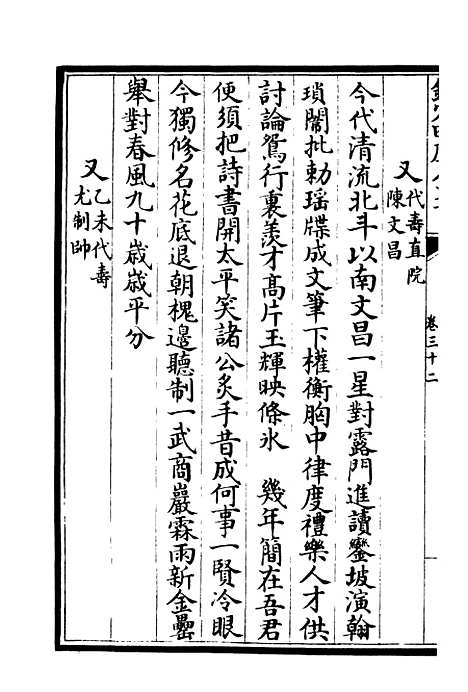 欽定四庫全書
卷三十二
又代壽直院
陳文昌
今代清流北斗以南文昌一星對露門進讀鑾坡演翰
瑣闈批勅瑶牒成文筆下權衡胸中律度禮樂人才供
討論鴛行裏羨才髙片玉輝映條氷　幾年簡在吾君
便須把詩書開太平笑諸公炙手昔成何事一賢冷眼
今獨修名花底退朝槐邊聽制一武商巖霖雨新金罍
舉對春風九十歳歳平分
又乙未代壽
尤制帥